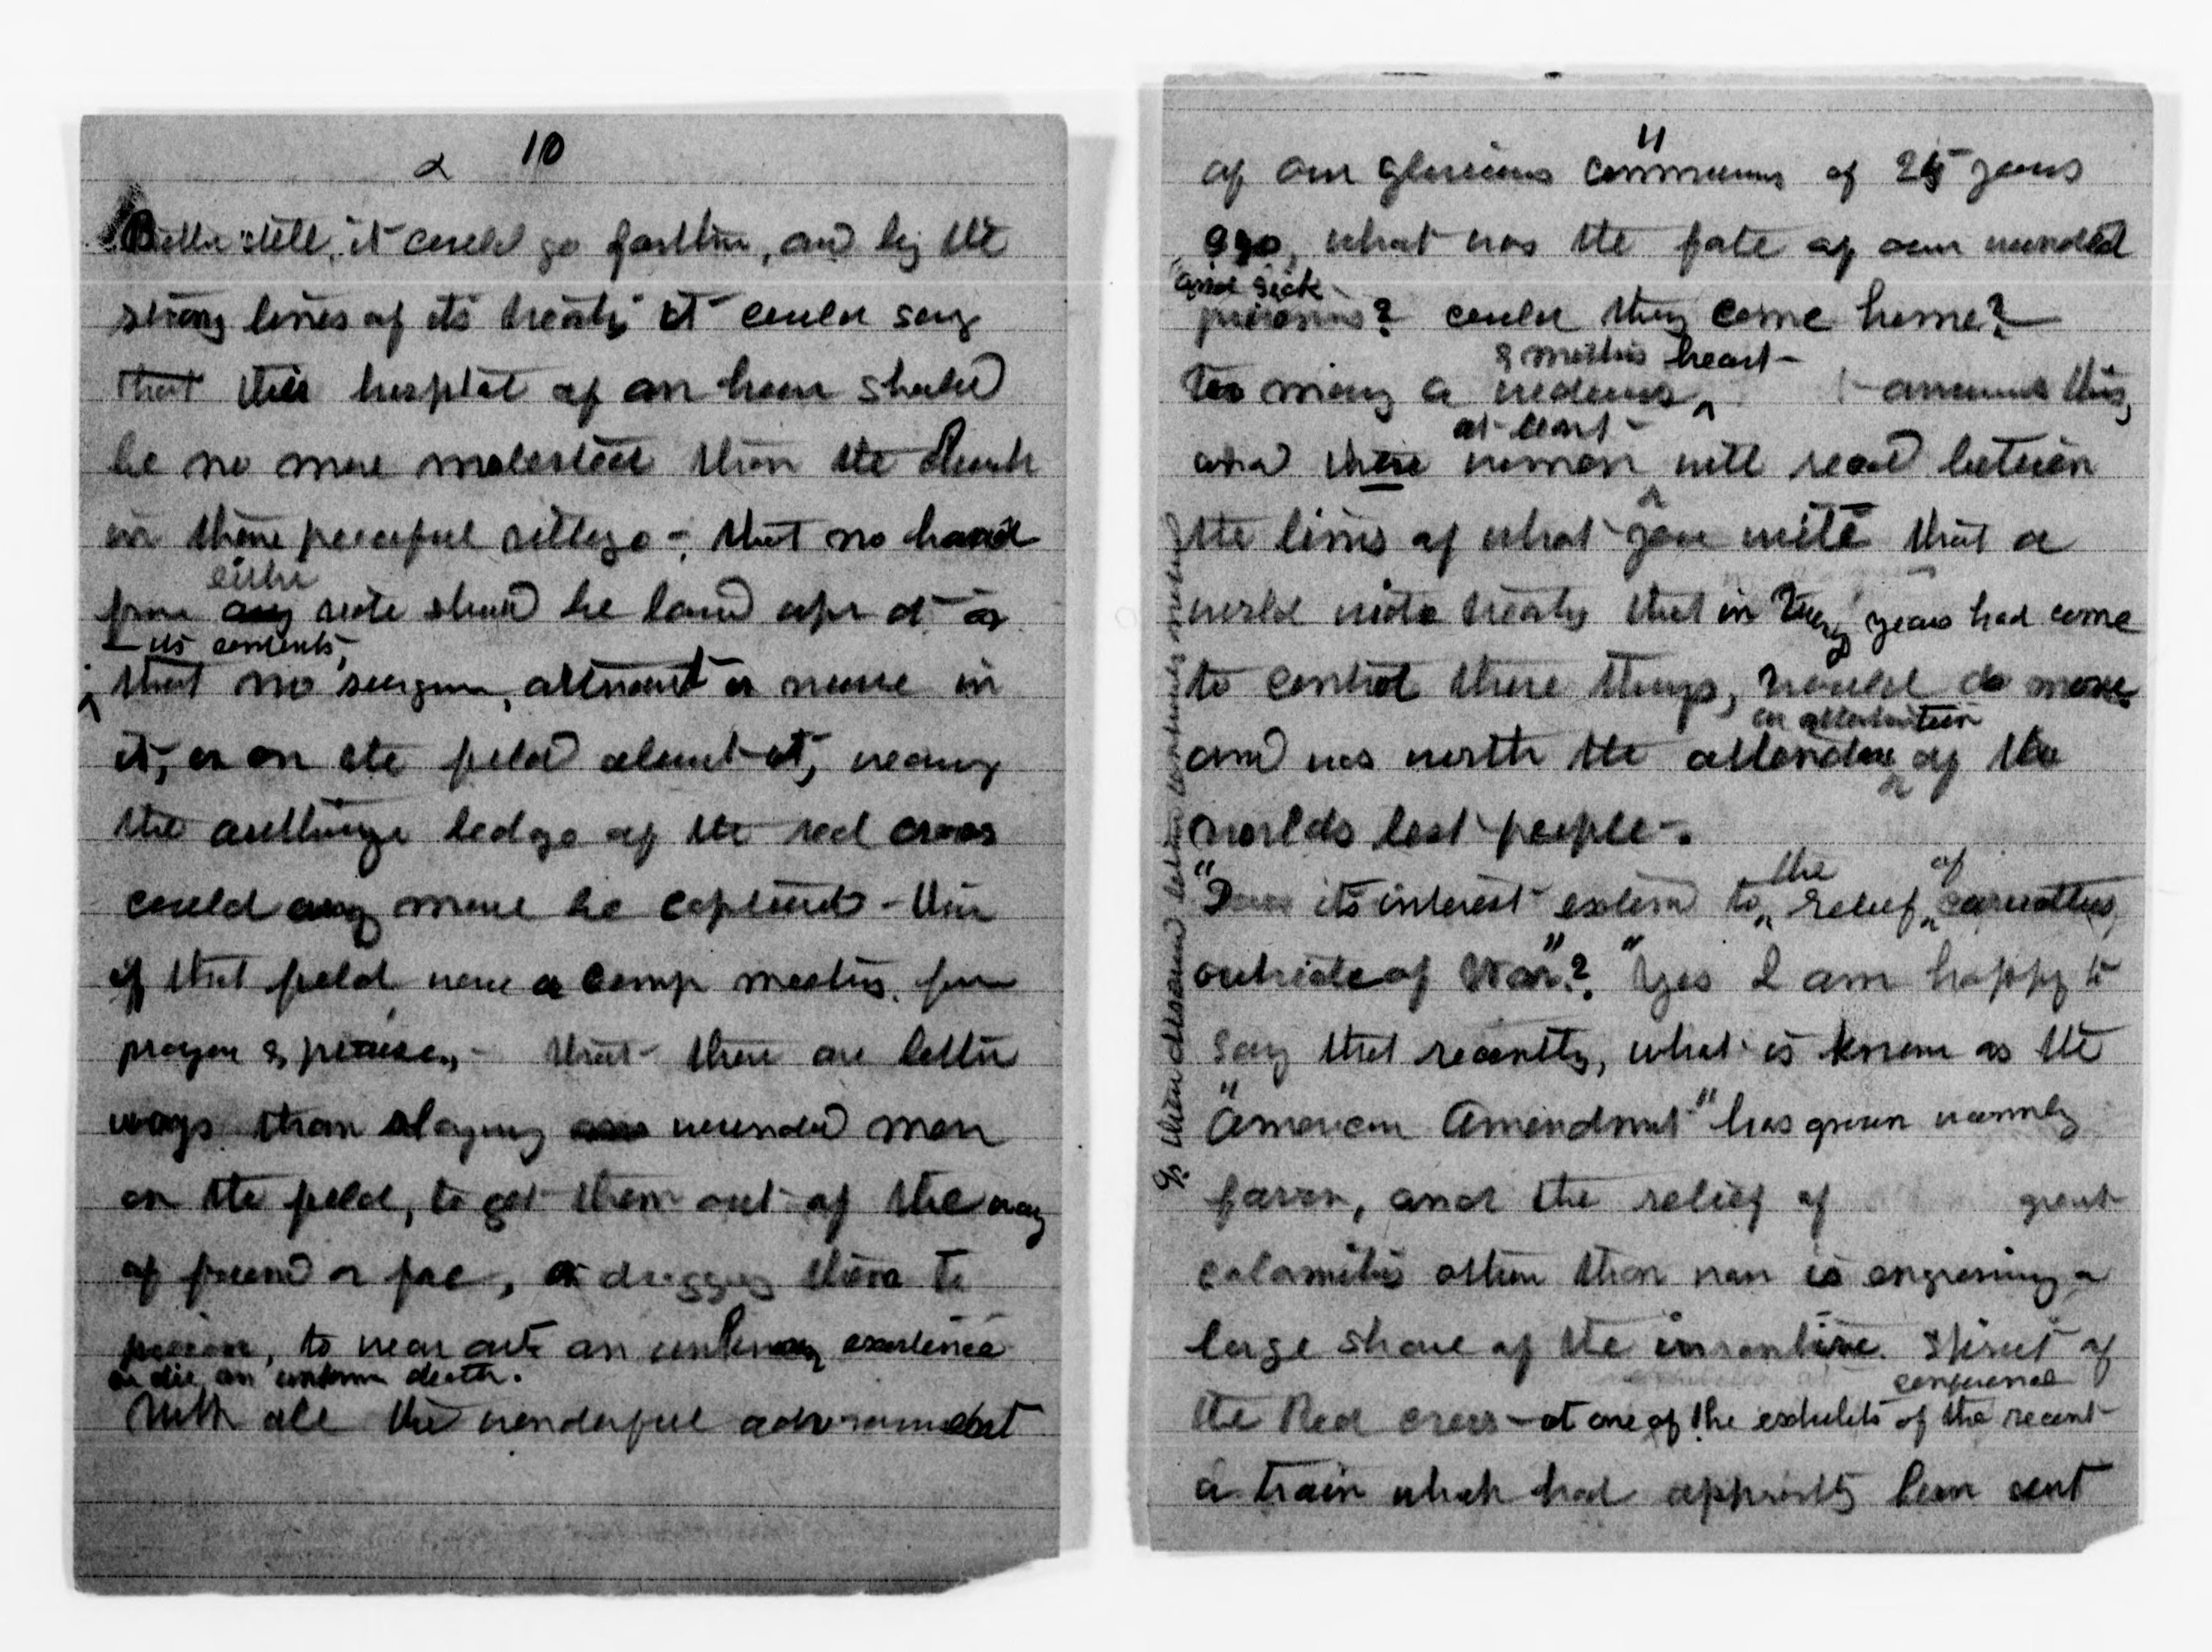 10
Better still, it could go farther, and by the
strong lines of its treaty it could say
that this hospital of an hour should
be no more molested than the church
in there peaceful village - that no hand
either
from any side should be laid upon it or
its contents,
that no surgeon, attendant or nurse in
it, or on the field about it, wearing
the badge of the red cross
could any more be captured - than
if that field were a camp meeting for
prayer & praise, - that there are better
ways than slaying wounded men
on the field, to get them out of the way
of friend or foe, or dragging them to
prison, to wear out an unknown existence
or die an unknown death.
With all the wonderful advancement
11
of our glorious of 25 years
ago, what was the fate of our wounded
and sick
prisoners? could they come home?
& mothers heart -
too many a widows answers this,
at least -
and these women will read between
the lines of what you write that a
world wide treaty that in twenty years had come
to control these things, would do more
and was worth the of the
worlds best people -.
the of
"Does its interest extend to relief calamities,
outside of War"? "Yes I am happy to
say that recently, what is known as the
"American Amendment" has grown warmly
favor, and the relief of great
calamities other than war is engrossing a
large share of the inventive spirit of
conference
the Red cross - at one of the exhibits of the recent
a train which had apparently been sent